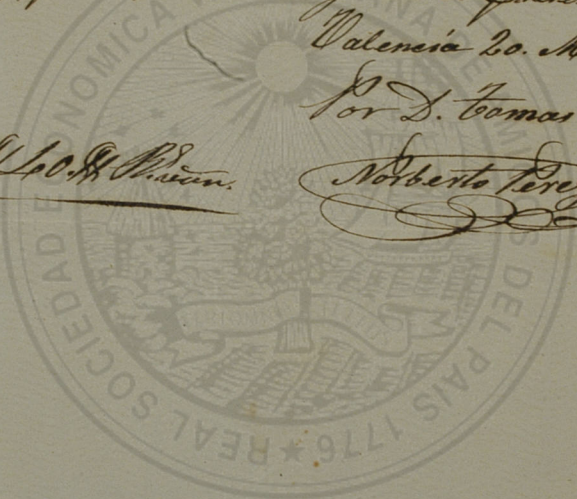 Valencia 20. M
Por D. Tomas
40. Rs. Von.
Norberto Pere
REAL SOCIEDAD ECONOMICA NA DE MI OS DEL PAIS 1776